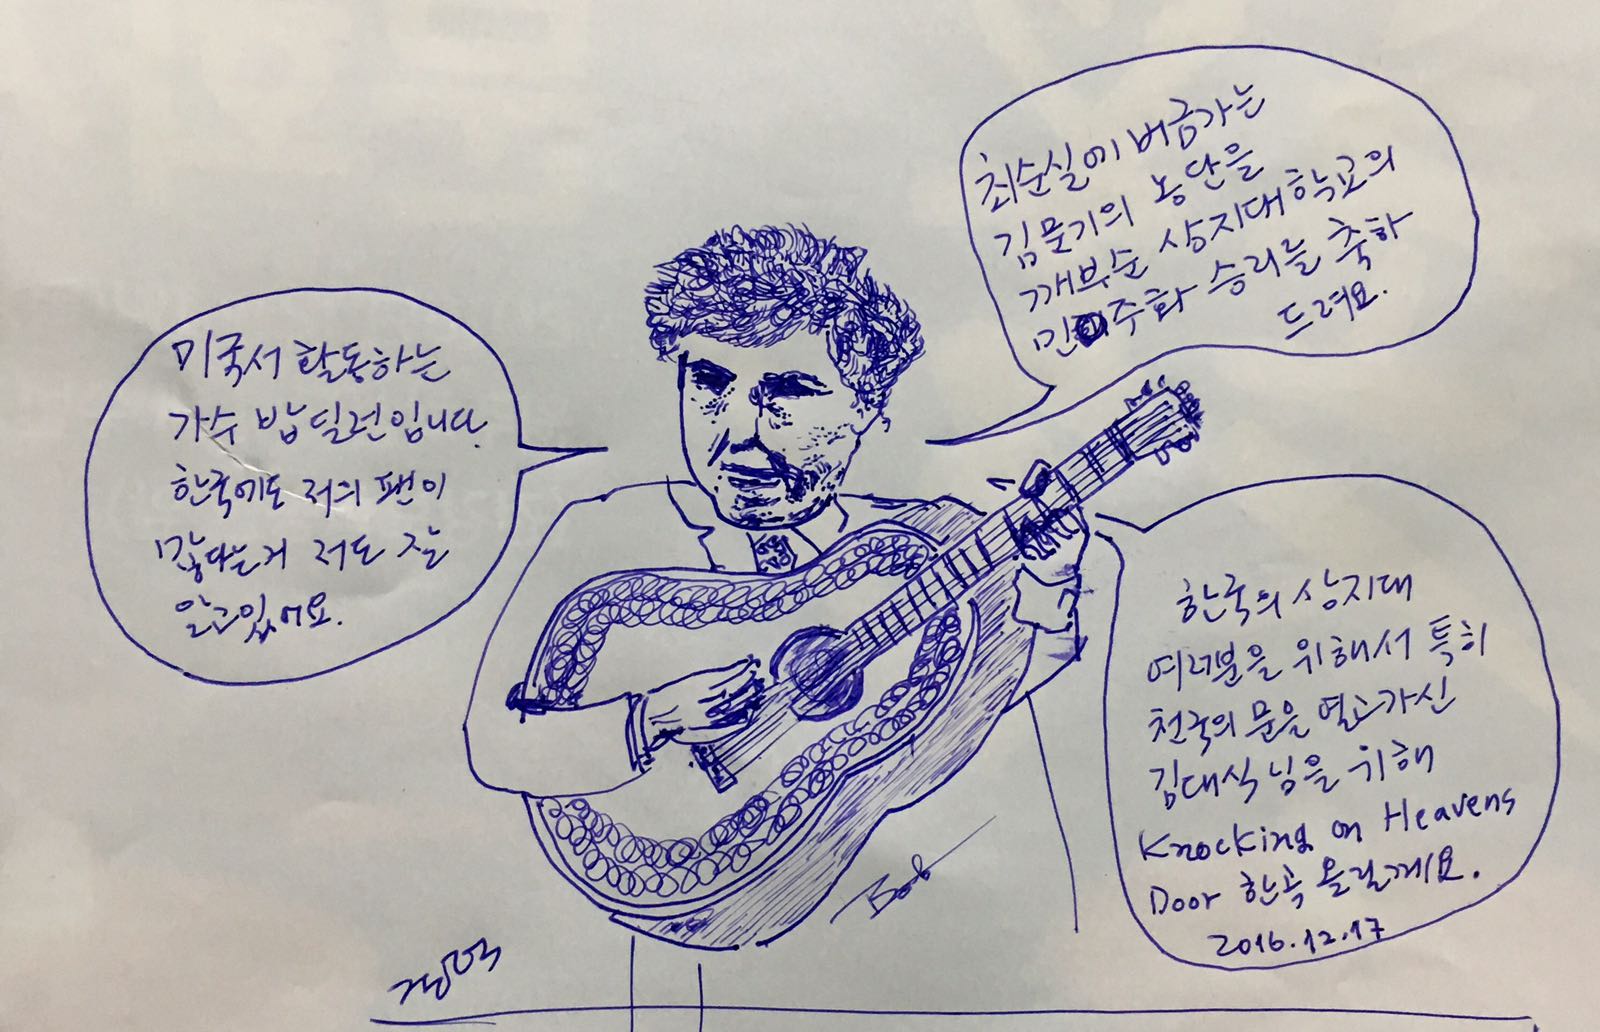 미국서 활동하는
가수 밥 딜런입니다.
한국에도 저의 팬이
많다는거 저도 잘
알고있어요.
최순실에 버금가는
김문기의 농단을
깨부순 상지대학교의
민주화 승리를 축하
드려요.
한국의 상지대
여러분을 위해서 특히
천국의 문을 열고가신
김대식님을 위해
Knocking on Heavens
Door 한곡 올릴께요.
2016.12.17
Bob